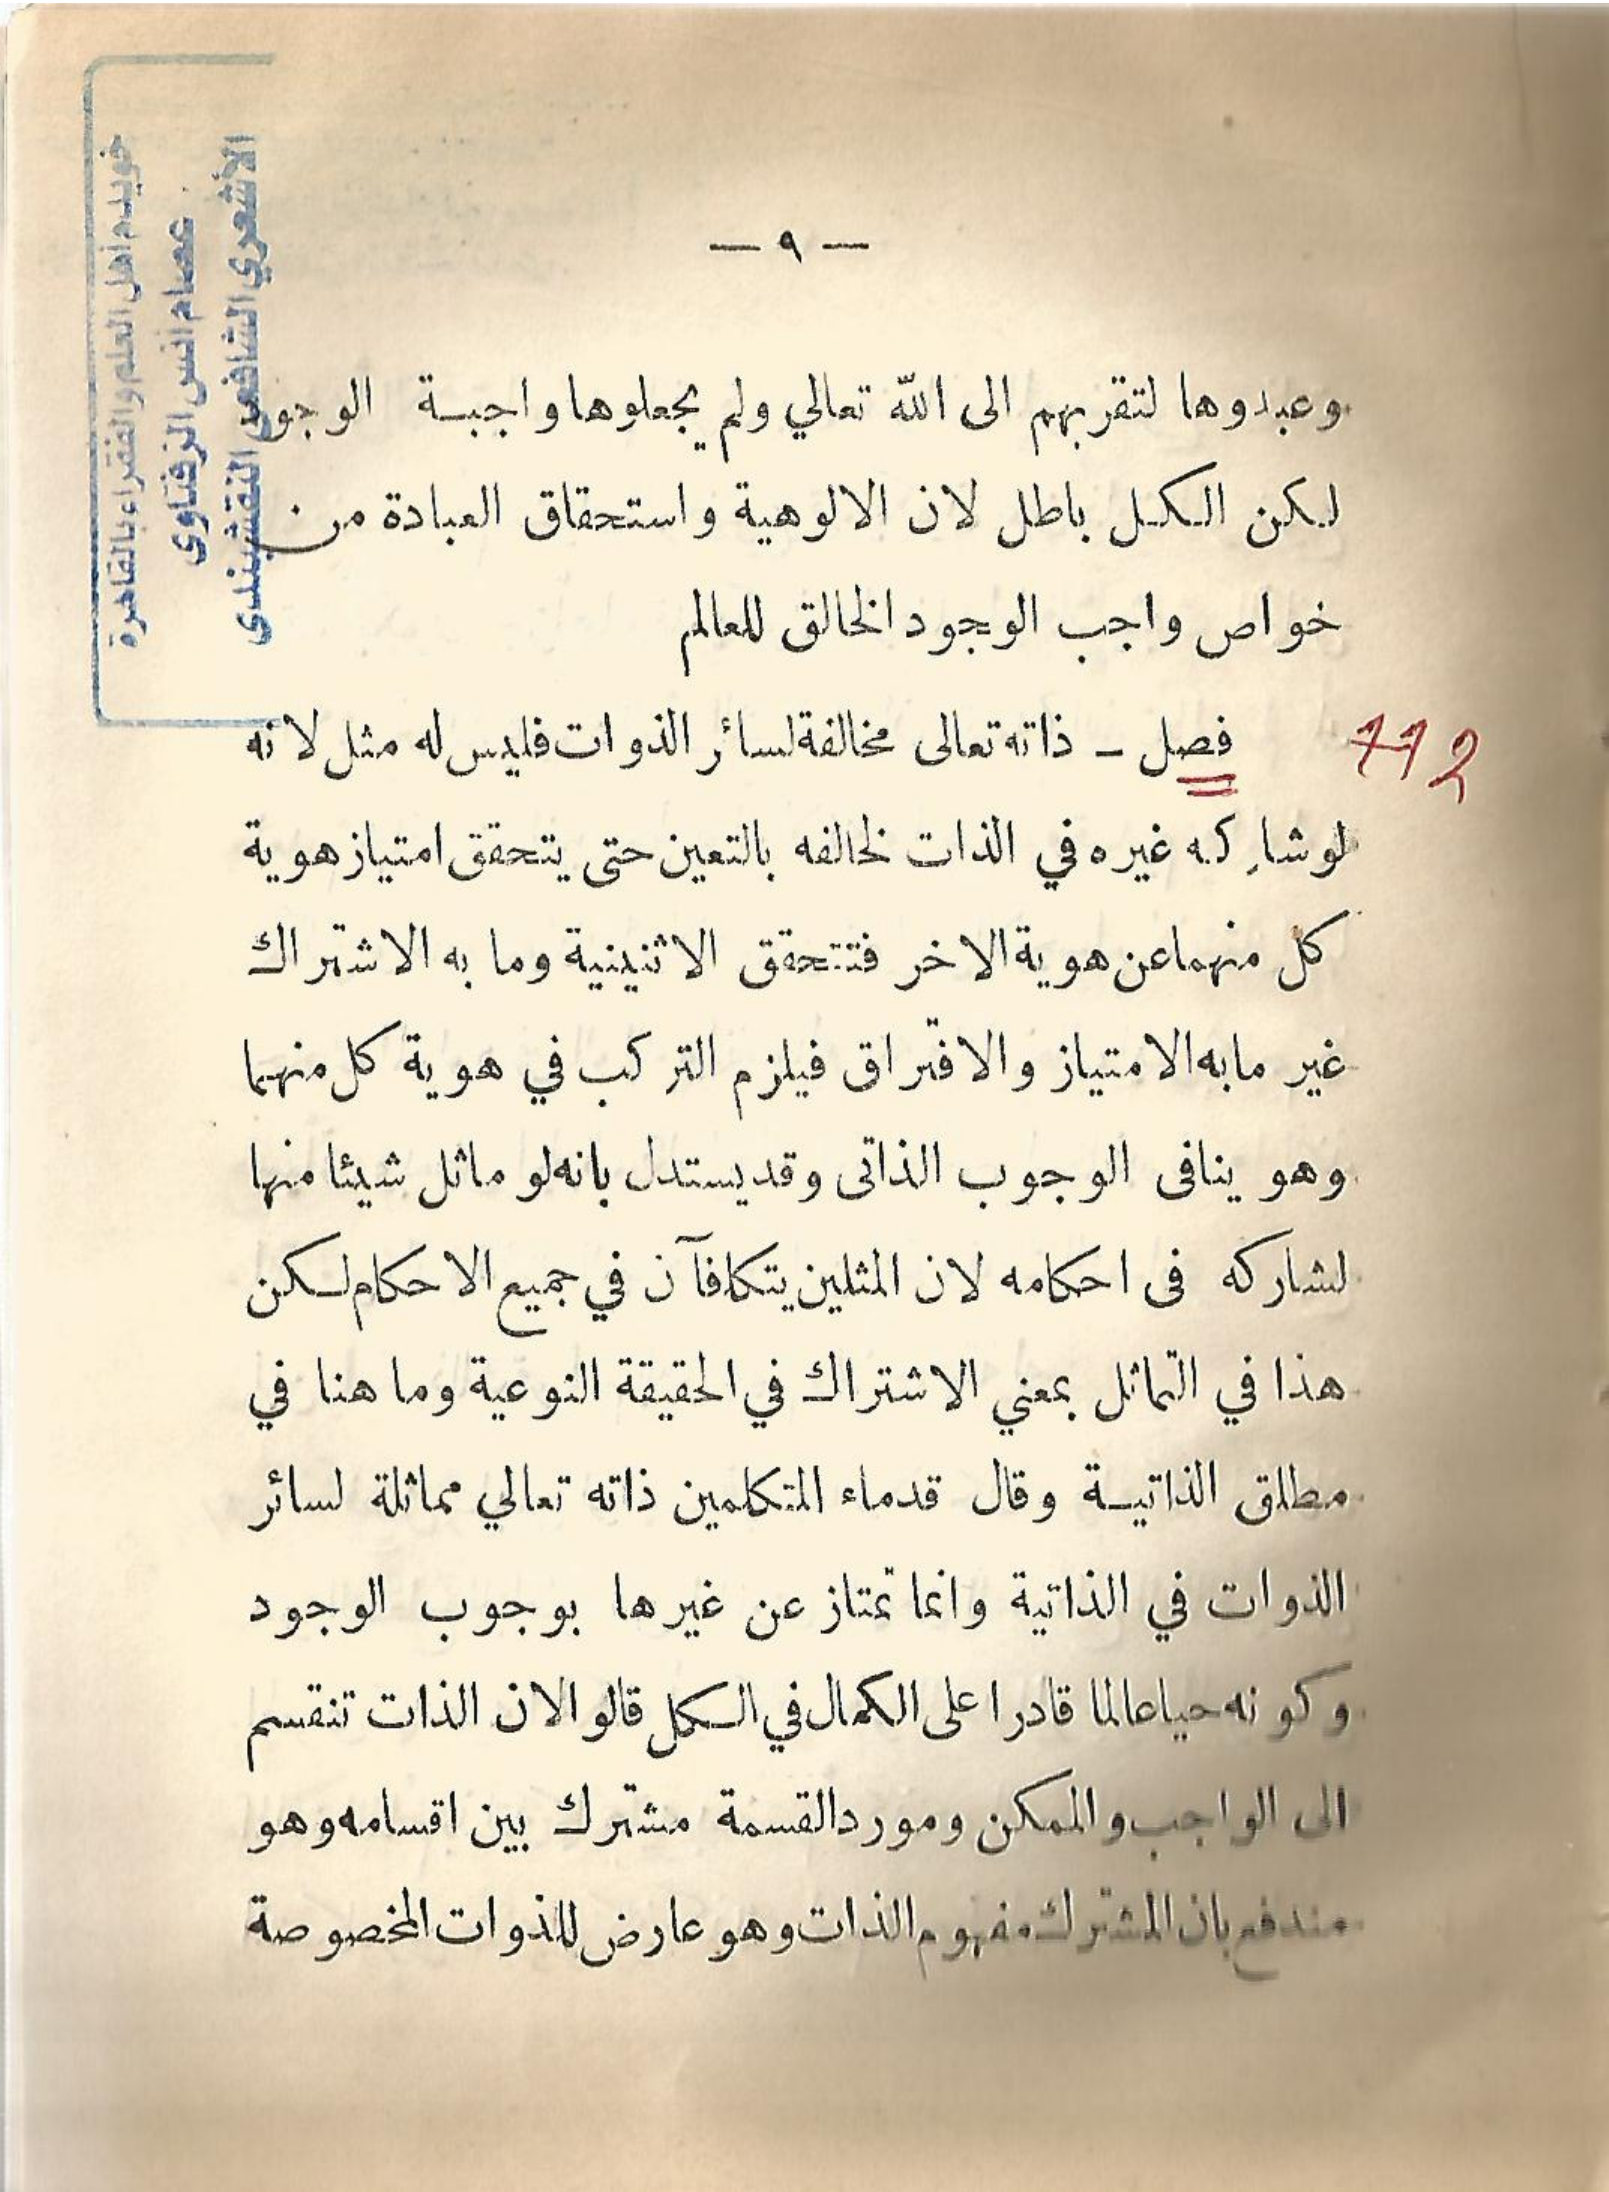 — ٩ —
وعبدوها لتقربهم الى الله تعالي ولم يجعلوها واجبـة الوجو
لـكن الـكـل باطل لان الالوهية واستحقاق العبادة من
خواص واجب الوجود الخالق للعالم
فصل – ذاته تعالى مخالفة لسائر الذوات فليس له مثل لانه
لو شاركه غيره في الذات لخالفه بالتعين حتى يتحقق امتياز هوية
كل منهما عن هوية الاخر فتتحقق الاثنينية وما به الاشتراك
غير ما به الامتياز والافتراق فيلزم التركب في هوية كل منهما
وهو ينافى الوجوب الذاتى وقد يستدل بانه لو ماثل شيئا منها
لشاركه فى احكامه لان المثلين يتكافآن في جميع الاحكام لـكن
هذا في التماثل بمعني الاشتراك في الحقيقة النوعية وما هنا في
مطلق الذاتيـة وقال قدماء المتكلمين ذاته تعالي مماثلة لسائر
الذوات في الذاتية وانما تمتاز عن غيرها بوجوب الوجود
وكونه حيا عالما قادرا على الكمال في الـكل قالوا لان الذات تنقسم
الى الواجب والممكن ومورد القسمة مشترك بين اقسامه وهو
مندفع بان المشترك مفهوم الذات وهو عارض للذوات المخصوصة
112
خويدم أهل العلم والفقراء بالقاهرة
عصام انس الزفتاوى
الأشعري الشافعي النقشبندى